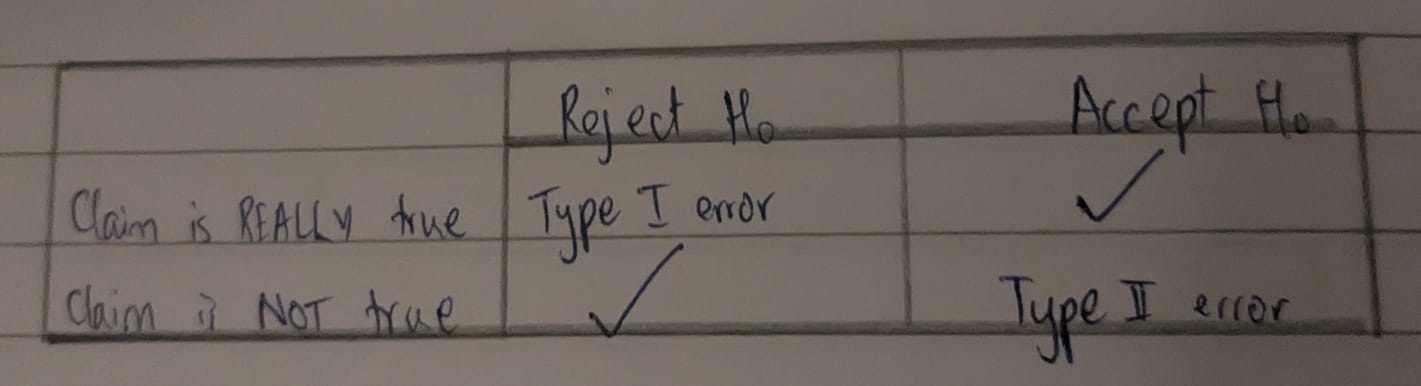 Reject H₀ Accept H₀
Claim is REALLY true Type I error ✓
Claim is NOT true ✓ Type II error